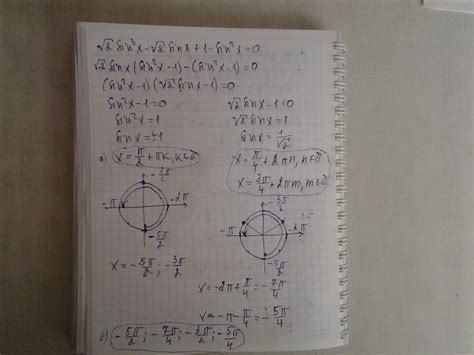 √2 sin³x - √2 sinx + 1 - sin²x = 0
√2 sinx (sin²x - 1) - (sin²x - 1) = 0
(sin²x - 1)(√2 sinx - 1) = 0
sin²x - 1 = 0 √2 sinx - 1 = 0
sin²x = 1 √2 sinx = 1
sinx = ±1 sinx = 1/√2
а) x = π/2 + πk, k∈Z x = π/4 + 2πn, n∈Z
x = 3π/4 + 2πm, m∈Z
-3π/2 -3π/2
-π -2π
-5π/2 -5π/2
x = -5π/2; -3π/2
x = -2π + π/4 = -7π/4
x = -π - π/4 = -5π/4
б) -5π/2; -7π/4; -3π/2; -5π/4